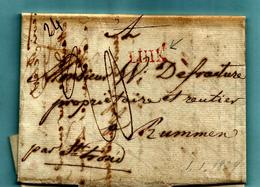 24
A
LUIK
Monsieur W. Defrasture
propriétaire et rentier
à Rummen
par St Trond